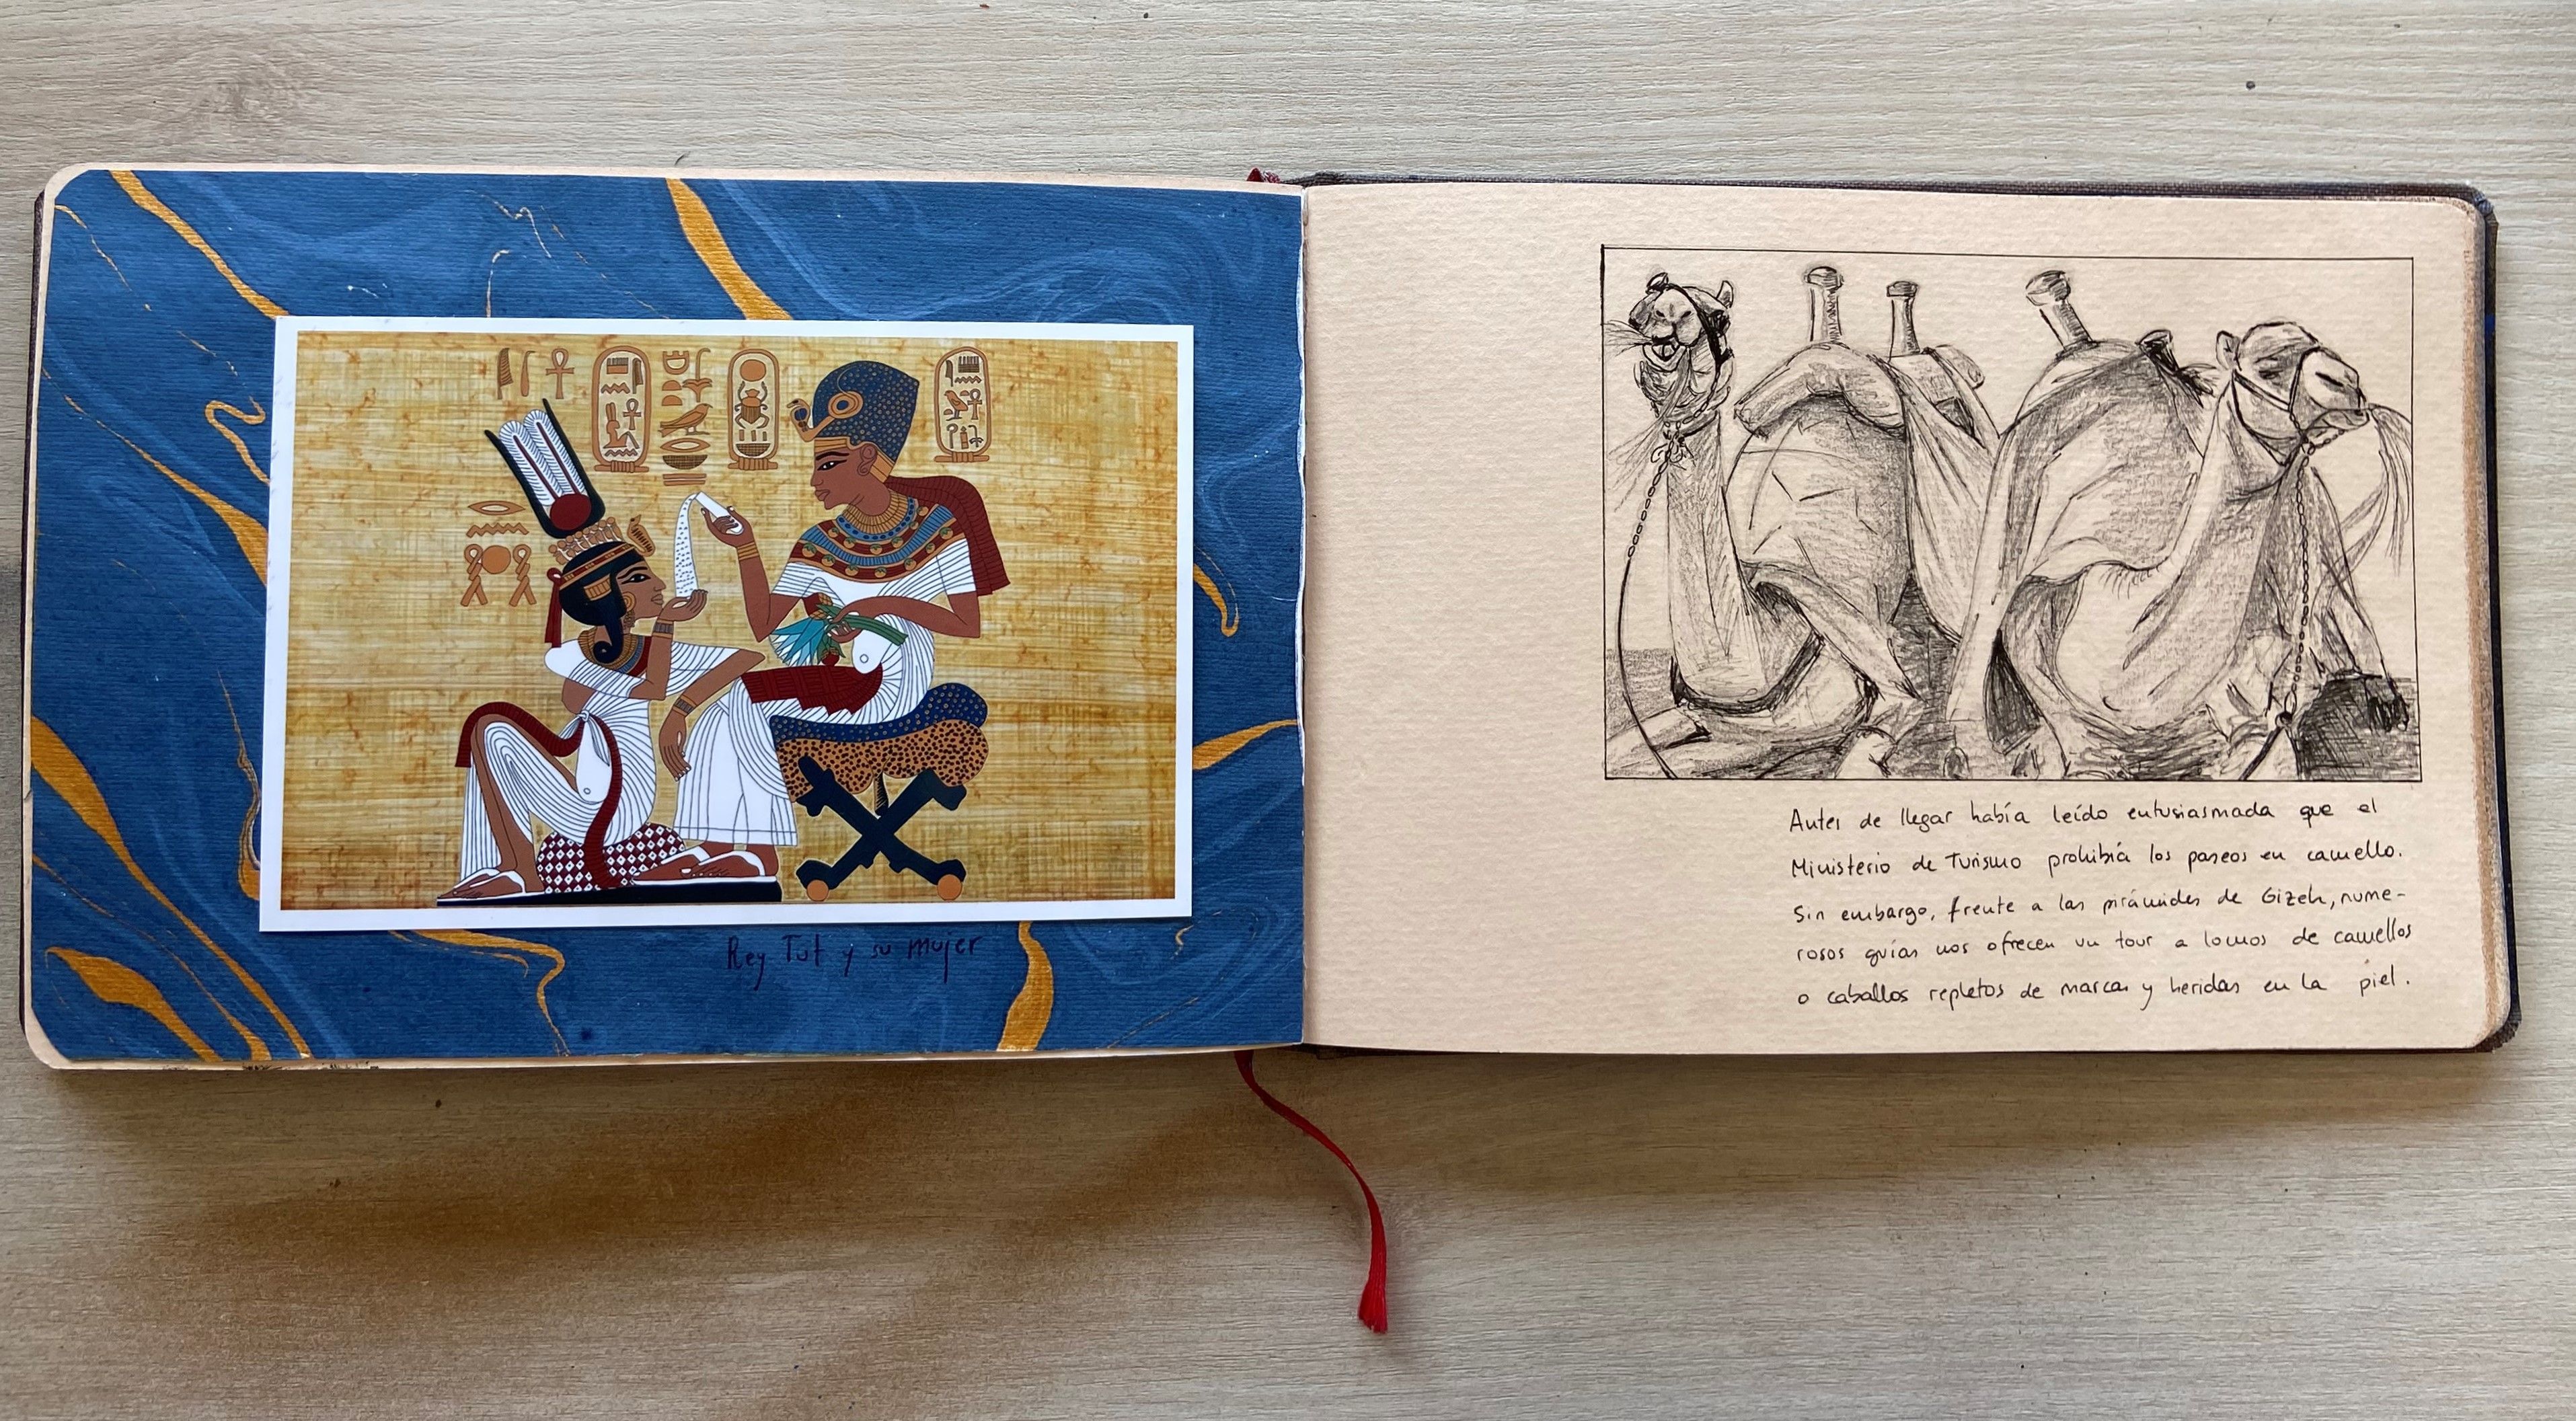 Rey Tut y su mujer
Antes de llegar había leído entusiasmada que el
Ministerio de Turismo prohibía los paseos en camello.
Sin embargo, frente a las pirámides de Gizeh, nume-
rosos guías nos ofrecen un tour a lomos de camellos
o caballos repletos de marcas y heridas en la piel.